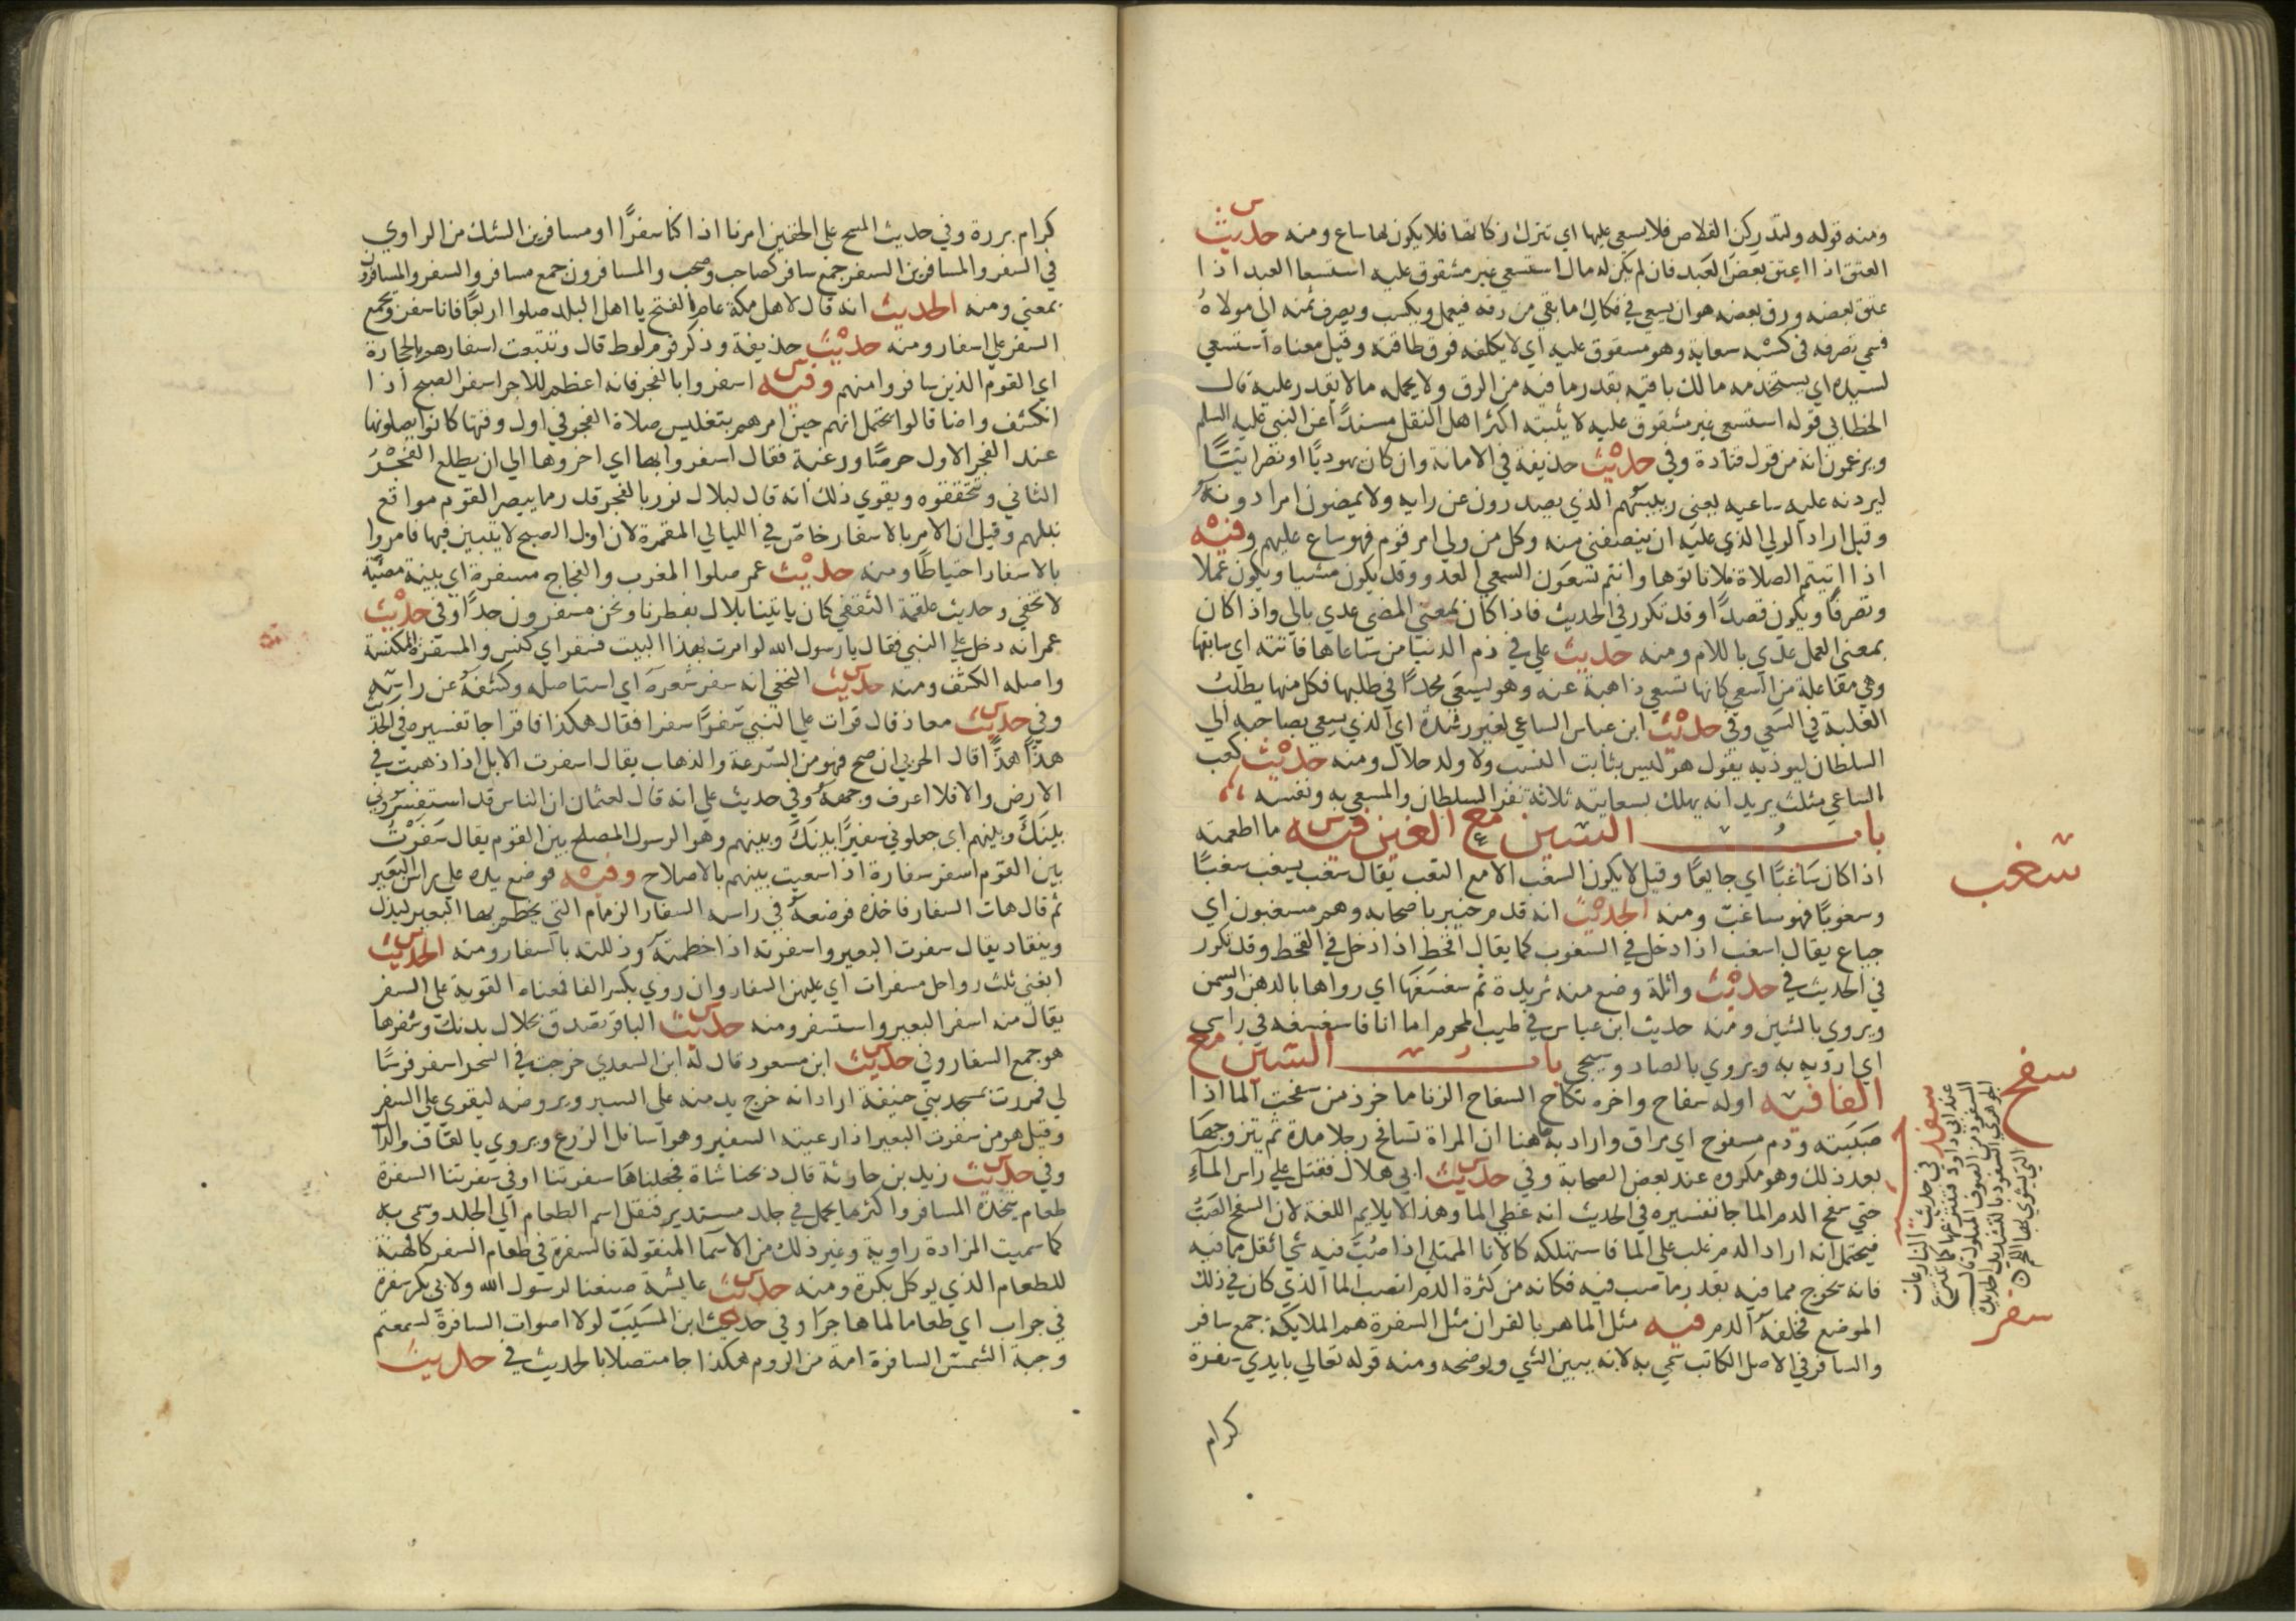 ومنه قوله ولتدركن القلاص فلا يسعى عليها اي تترك زكاتها فلا يكون لها ساع ومنه حديث
العتق اذا اعتق بعض العبد فان لم يكن له مال استسعي غير مشقوق عليه استسعا العبد اذا
عتق بعضه ورق بعضه هو ان يسعى في فكاك ما بقي من رقه فيعمل ويكسب ويصرف ثمنه الى مولاه
فسمي تصرفه في كسبه سعاية وهو مسقوق عليه اي لا يكلفه فوق طاقته وقيل معناه استسعي
لسيده اي يستخدمه مالك باقيه بقدر ما فيه من الرق ولا يحمله ما لا يقدر عليه قال
الخطابي قوله استسعي غير مشقوق عليه لا يثبته اكثر اهل النقل مسندا عن النبي عليه السلم
ويزعمون انه من قول قتادة وفي حديث حذيفة في الامانة وان كان يهوديا او نصرانيا
ليردنه عليه ساعيه يعني رييسهم الذي يصدرون عن رايه ولا يمضون امرا دونه
وقيل اراد الوالي الذي عليه ان ينصفني منه وكل من ولي امر قوم فهو ساع عليهم وفيه
اذا اتيتم الصلاة فلا تاتوها وانتم تسعون السعي العدو وقد يكون مشيا ويكون عملا
وتصرفا ويكون قصدا وقد تكرر في الحديث فاذا كان بمعني المضي عدي بالي واذا كان
بمعني العمل عدي باللام ومنه حديث علي في ذم الدنيا من ساعاها فاتته اي سابقها
وهي مفاعلة من السعي كانها تسعي ذاهبة عنه وهو يسعى مجدا في طلبها فكل منهما يطلب
الغلبة في السعي وفي حديث ابن عباس الساعي لغير رشدة اي الذي يسعي بصاحبه الي
السلطان ليوذيه يقول هو ليس بثابت النسب ولا ولد حلال ومنه حديث كعب
الساعي مثلث يريد انه يهلك بسعايته ثلاثة نفر السلطان والمسعي به ونفسه
باب السين مع الغين فيه ما اطعمته
اذا كان ساغبا اي جايعا وقيل لا يكون السغب الا مع التعب يقال سغب يسغب سغبا
وسغوبا فهو ساغب ومنه الحديث انه قدم خيبر باصحابه وهم مسغبون اي
جياع يقال اسغب اذا دخل في السغوب كما يقال اقحط اذا دخل في القحط وقد تكرر
في الحديث في حديث واثلة وضع منه ثريدة ثم سغسغها اي رواها بالدهن والسمن
ويروي بالشين ومنه حديث ابن عباس في طيب المحرم اما انا فاسغسغه في راسي
اي ارويه به ويروي بالصاد وسيجي باب السين مع
الفا فيه اوله سفاح واخره نكاح السفاح الزنا ماخوذ من سفحت الما اذا
صببته ودم مسفوح اي مراق واراد به هاهنا ان المراة تسافح رجلا مدة ثم يتزوجها
بعد ذلك وهو مكروه عند بعض الصحابة وفي حديث ابي هلال فقتل علي راس الماء
حتي سفح الدم الما جا تفسيره في الحديث انه غطي الما وهذا لا يلايم اللغة لان السفح الصب
فيحتمل انه اراد ان الدم غلب علي الما فاستهلكه كالانا الممتلي اذا صب فيه شي اثقل مما فيه
فانه يخرج مما فيه بقدر ما صب فيه فكانه من كثرة الدم انصب الما الذي كان في ذلك
الموضع فخلفه الدم فيه مثل الماهر بالقران مثل السفرة هم الملايكة جمع سافر
والسافر في الاصل الكاتب سمي به لانه يبين الشي ويوضحه ومنه قوله تعالي بايدي سفرة
كرام
سغب
سفح
سفد في حديث النازعات
سفر
كرام بررة وفي حديث المسح على الخفين امرنا اذا كنا سفرا او مسافرين الشك من الراوي
في السفر والمسافرين السفر جمع سافر كصاحب وصحب والمسافرون جمع مسافر والسفر والمسافرون
بمعني ومنه الحديث انه قال لاهل مكة عام الفتح يا اهل البلد صلوا اربعا فانا سفر ويجمع
السفر على اسفار ومنه حديث حذيفة وذكر قوم لوط قال وتتبعت اسفارهم بالحجارة
اي القوم الذين سافروا منهم وفيه اسفروا بالفجر فانه اعظم للاجر اسفر الصبح اذا
انكشف واضا قالوا يحتمل انهم حين امرهم بتغليس صلاة الفجر في اول وقتها كانوا يصلونها
عند الفجر الاول حرصا ورغبة فقال اسفروا بها اي اخروها الي ان يطلع الفجر
الثاني وتتحققوه ويقوي ذلك انه قال لبلال نور بالفجر قدر ما يبصر القوم مواقع
نبلهم وقيل ان الامر بالاسفار خاص في الليالي المقمرة لان اول الصبح لا يتبين فيها فامروا
بالاسفار احتياطا ومنه حديث عمر صلوا المغرب والفجاج مسفرة اي بينة مضية
لا تخفي وحديث علقمة الثقفي كان ياتينا بلال بفطرنا ونحن مسفرون جدا وفي حديث
عمر انه دخل علي النبي فقال يا رسول الله لو امرت بهذا البيت فسفر اي كنس والمسفرة المكنسة
واصله الكشف ومنه حديث النخعي انه سفر شعره اي استاصله وكشفه عن راسه
وفي حديث معاذ قال قرات علي النبي سفرا سفرا فقال هكذا فاقرا جا تفسيره في الحديث
هذا هذا قال الحربي ان صح فهو من السرعة والذهاب يقال اسفرت الابل اذا ذهبت في
الارض والا فلا اعرف وجهه وفي حديث علي انه قال لعثمان ان الناس قد استسفروني
بينك وبينهم اي جعلوني سفيرا بينك وبينهم وهو الرسول المصلح بين القوم يقال سفرت
بين القوم اسفر سفارة اذا سعيت بينهم بالاصلاح وفيه فوضع يده على راس البعير
ثم قال هات السفار فاخذه فوضعه في راسه السفار الزمام التي يخطم بها البعير ليذل
وينقاد يقال سفرت البعير واسفرته اذا خطمته وذللته بالسفار ومنه الحديث
ابغني ثلث رواحل مسفرات اي عليهن السفار وان روي بكسر الفا فمعناه القوية علي السفر
يقال منه اسفر البعير واستسفر ومنه حديث الباقر تصدق بجلال بدنك وسفرها
هو جمع السفار وفي حديث ابن مسعود قال له ابن السعدي خرجت في السحر اسفر فرسا
لي فمررت بمسجد بني حنيفة اراد انه خرج يدمنه على السير ويروضه ليقوي علي السفر
وقيل هو من سفرت البعير اذا رعيته السفير وهو اسافل الزرع ويروي بالقاف والدال
وفي حديث زيد بن حارثة قال ذبحنا شاة فجعلناها سفرتنا او في سفرتنا السفرة
طعام يتخذه المسافر واكثر ما يحمل في جلد مستدير فنقل اسم الطعام الي الجلد وسمي به
كما سميت المزادة راوية وغير ذلك من الاسما المنقولة فالسفرة في طعام السفر كاللهنة
للطعام الذي يوكل بكرة ومنه حديث عايشة صنعنا لرسول الله ولابي بكر سفرة
في جراب اي طعاما لما هاجرا وفي حديث ابن المسيب لولا اصوات السافرة لسمعتم
وجبة الشمس السافرة امة من الروم هكذا جا متصلا بالحديث في حديث